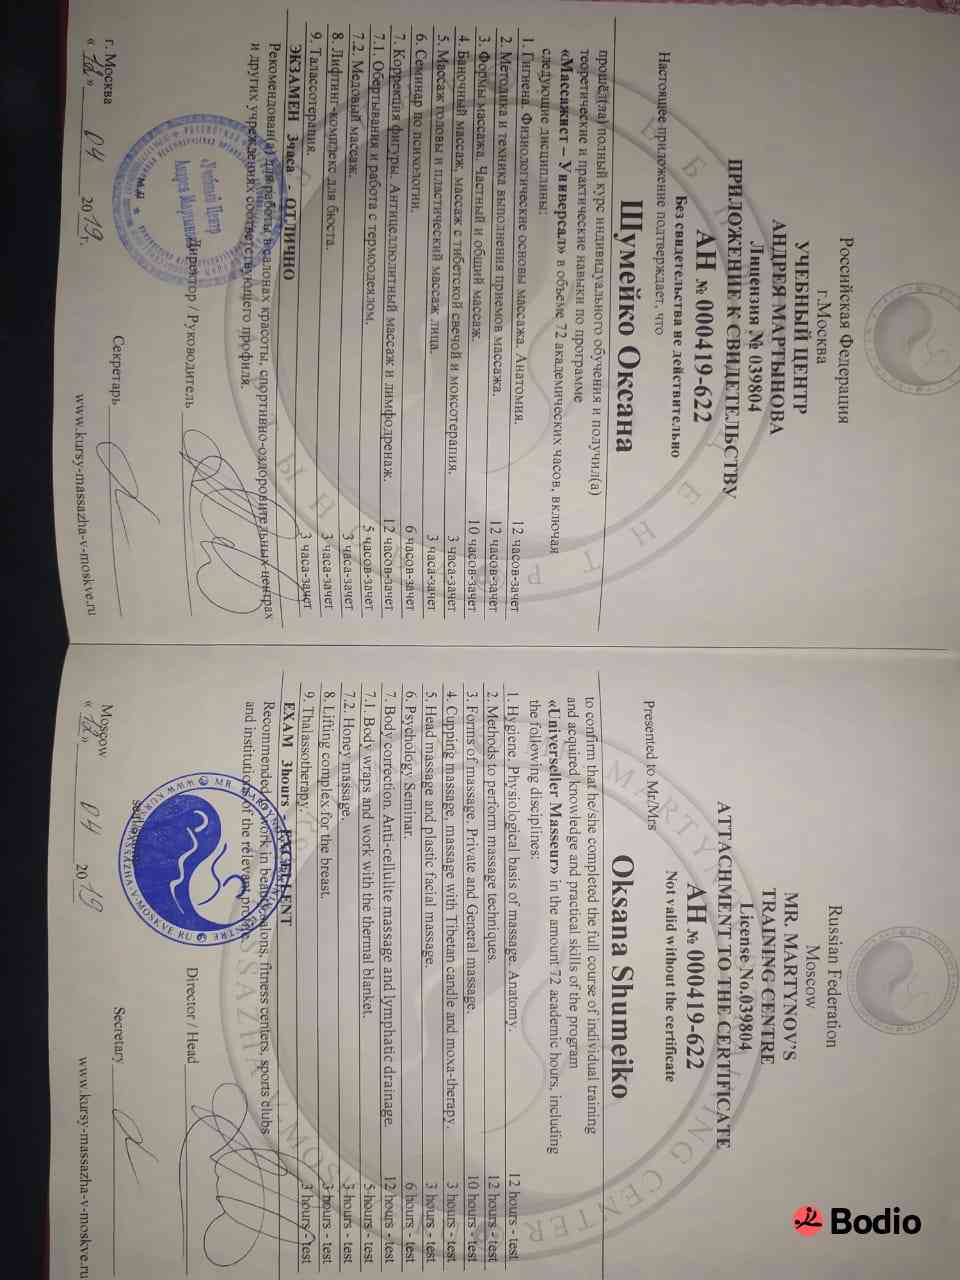 Российская Федерация
г.Москва
УЧЕБНЫЙ ЦЕНТР
АНДРЕЯ МАРТЫНОВА
Лицензия № 039804
ПРИЛОЖЕНИЕ К СВИДЕТЕЛЬСТВУ
АН № 000419-622
Без свидетельства не действительно
Настоящее приложение подтверждает, что
Шумейко Оксана
прошёл(ла) полный курс индивидуального обучения и получил(а)
теоретические и практические навыки по программе
«Массажист – Универсал» в объеме 72 академических часов, включая
следующие дисциплины:
1. Гигиена. Физиологические основы массажа. Анатомия. 12 часов-зачет
2. Методика и техника выполнения приемов массажа. 12 часов-зачет
3. Формы массажа. Частный и общий массаж. 10 часов-зачет
4. Баночный массаж, массаж с тибетской свечой и моксотерапия. 3 часа-зачет
5. Массаж головы и пластический массаж лица. 3 часа-зачет
6. Семинар по психологии. 6 часов-зачет
7. Коррекция фигуры. Антицеллюлитный массаж и лимфодренаж. 12 часов-зачет
7.1. Обертывания и работа с термоодеялом. 5 часов-зачет
7.2. Медовый массаж. 3 часа-зачет
8. Лифтинг-комплекс для бюста. 3 часа-зачет
9. Талассотерапия. 3 часа-зачет
ЭКЗАМЕН 3часа - ОТЛИЧНО
Рекомендован(а) для работы в салонах красоты, спортивно-оздоровительных центрах
и других учреждениях соответствующего профиля.
Директор / Руководитель
«Учебный Центр
Андрея Мартынова»
М.П.
г. Москва
Секретарь
« 12 » 04 2019 г.
www.kursy-massazha-v-moskve.ru
Russian Federation
Moscow
MR. MARTYNOV'S
TRAINING CENTRE
License No.039804
ATTACHMENT TO THE CERTIFICATE
АН № 000419-622
Not valid without the certificate
Presented to Mr/Mrs
Oksana Shumeiko
to confirm that he/she completed the full course of individual training
and acquired knowledge and practical skills of the program
«Universeller Masseur» in the amount 72 academic hours, including
the following disciplines:
1. Hygiene. Physiological basis of massage. Anatomy. 12 hours - test
2. Methods to perform massage techniques. 12 hours - test
3. Forms of massage. Private and General massage. 10 hours - test
4. Cupping massage, massage with Tibetan candle and moxa-therapy. 3 hours - test
5. Head massage and plastic facial massage. 3 hours - test
6. Psychology Seminar. 6 hours - test
7. Body correction. Anti-cellulite massage and lymphatic drainage. 12 hours - test
7.1. Body wraps and work with the thermal blanket. 5 hours - test
7.2. Honey massage. 3 hours - test
8. Lifting complex for the breast. 3 hours - test
9. Thalassotherapy. 3 hours - test
EXAM 3hours - EXCELLENT
Recommended to work in beauty salons, fitness centers, sports clubs
and institutions of the relevant profile.
Director / Head
Moscow
Secretary
« 12 » 04 2019
www.kursy-massazha-v-moskve.ru
Bodio